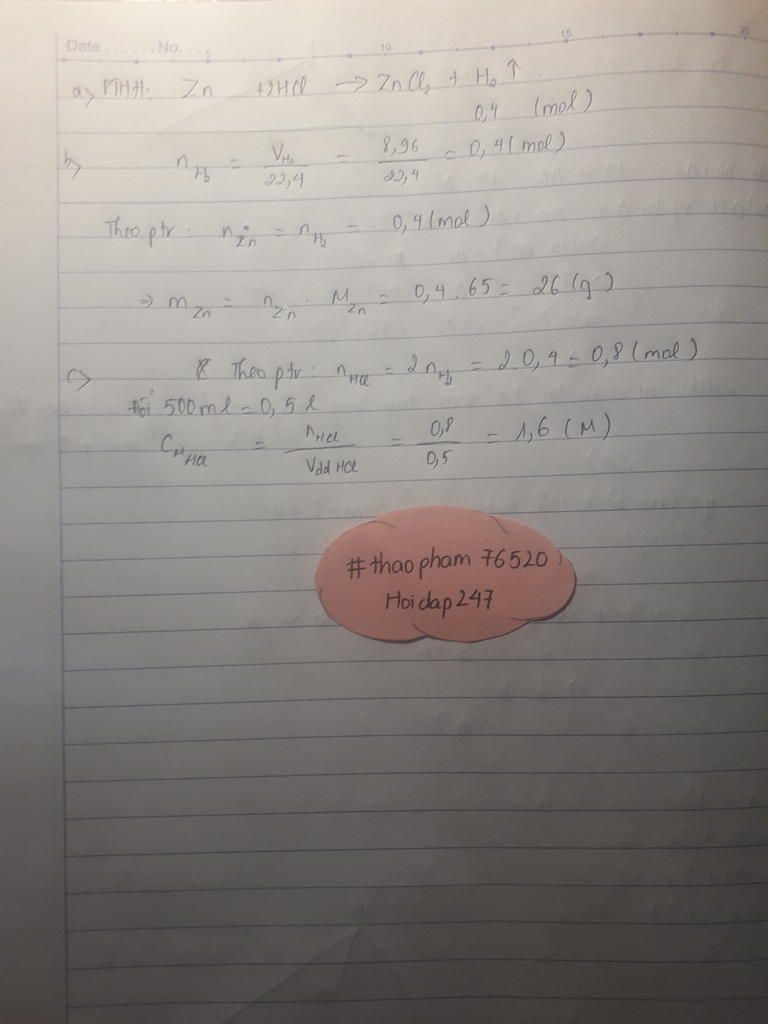 Date ...... No. ... 5 10 15 20
a) PTHH: Zn + 2HCl → ZnCl₂ + H₂ ↑
0,4 (mol)
b) n H₂ = V H₂ / 22,4 = 8,96 / 22,4 = 0,4 (mol)
Theo ptr: n Zn = n H₂ = 0,4 (mol)
⇒ m Zn = n Zn . M Zn = 0,4 . 65 = 26 (g)
c) Theo ptr: n HCl = 2 n H₂ = 2 0,4 = 0,8 (mol)
Đổi 500ml = 0,5 l
C M HCl = n HCl / V dd HCl = 0,8 / 0,5 = 1,6 (M)
#thaopham 76520
Hoidap247